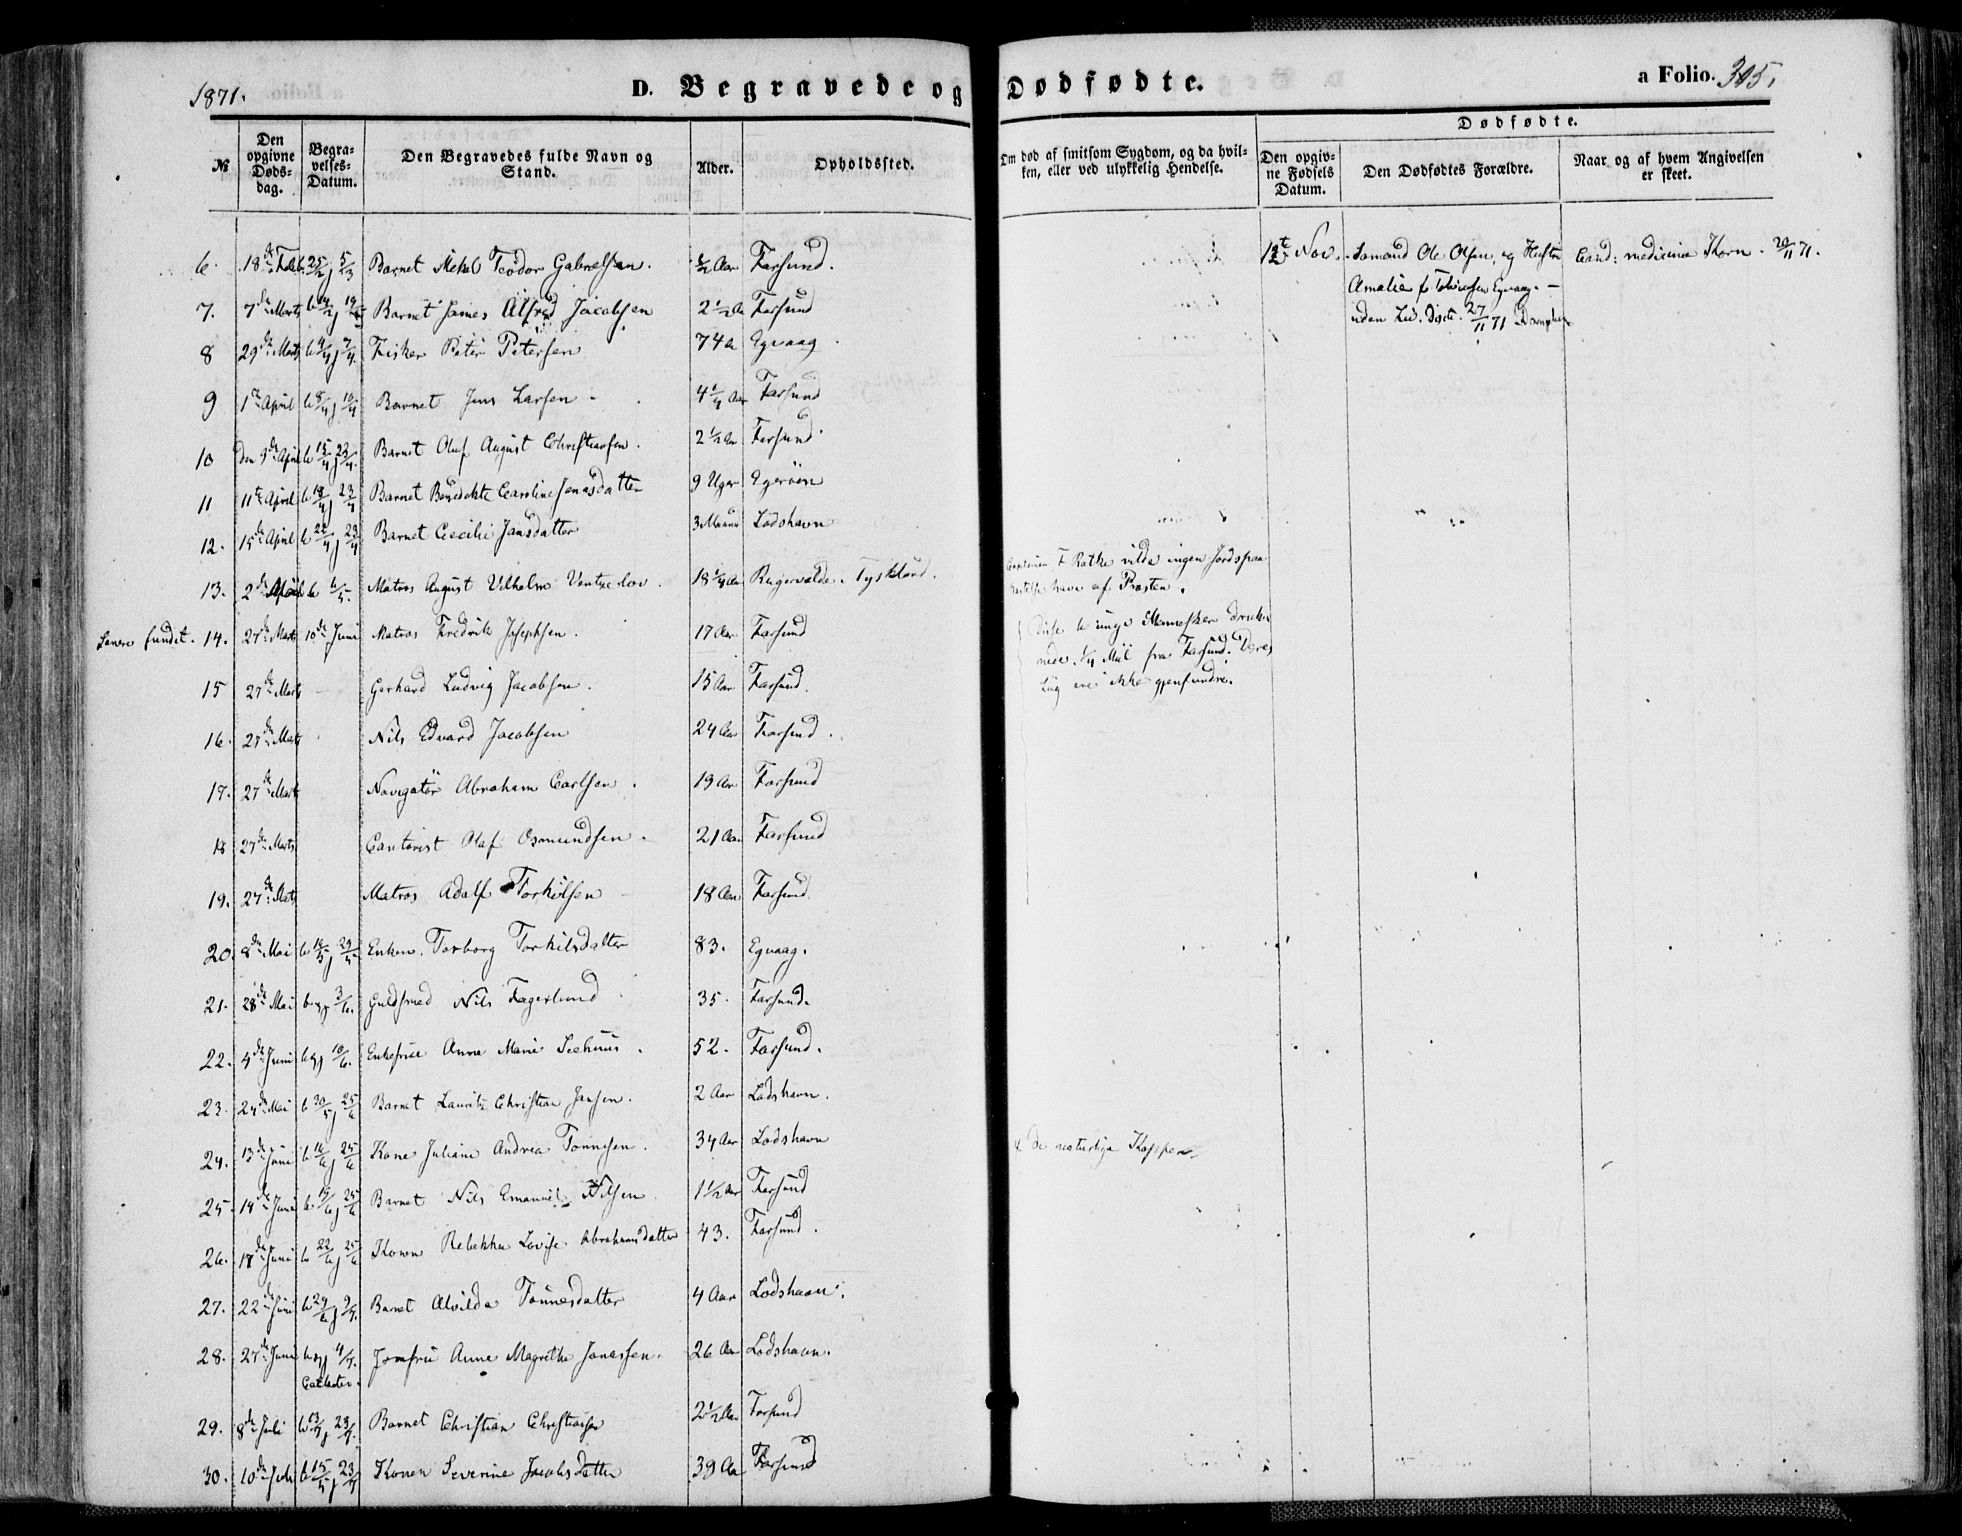 1871.
D. Begravede og Dødfødte.
a Folio. 305.
№
Den opgivne Døds-dag.
Begra-velses-Datum.
Den Begravedes fulde Navn og Stand.
Alder.
Opholdssted.
Om død af smitsom Sygdom, og da hvil-ken, eller ved ulykkelig Hendelse.
Dødfødte.
Den opgiv-ne Fødsels Datum.
Den Dødfødtes Forældre.
Naar og af hvem Angivelsen er skeet.
6. 18de Feb. 25/2 j 5/3 Barnet Teodor Gabrielsen. 1/2 Aar Farsund.
12te Nov. Sømand Ole Olsen, og Hustru Cand: medicina Thorn. 20/11 71.
Amalie f. Egvaag.
uden Liv. 27/11 71
7. 7de Marts b 14/2 j 19/ Barnet James Alfred Jacobsen 2 1/2 Aa Farsund
8 29de Marts b 4/4 j 7/4. Fisker Peter Petersen 74 a Egvaag
9 1te April b 8/4 j 10/4 Barnet Jens Larsen 4 1/4 Aar Farsund
10 den 9de April b 15/4 j 23/4. Barnet Oluf August Christiansen. 2 1/2 Aar Farsund
11 11te April b 18/4 j 23/4 Barnet Benedikte Caroline Jonasdatter 9 Uger Egerøen
12. 15de April b 22/4 j 23/4 Barnet Cecilie Jansdatter 3 Maaned Lodshavn
13. 2de b 6/5. Matros August Vilhelm Ventzelov. 18 1/4 Aar Rugervalde. Tyskland.
F Ratke vilde ingen Jordspaa-
kastelse have af Præsten.
Senere fundet. 14. 27de Marts 10de Juni Matros Fredrik Josephsen. 17 Aar Farsund
Disse 6 unge Mennesker drukn
nede 1/4 Miil fra Farsund. Deres
Liig ere ikke gjenfundne.
15 27de Marts Gerhard Ludvig Jacobsen. 15 Aar Farsund.
16. 27de Marts Nils Edvard Jacobsen 24 Aar Farsund.
17. 27de Marts Navigatør Abraham Carlsen. 19 Aar Farsund
18 27de Marts Contorist Olaf Osmundsen. 21 Aar Farsund
19. 27de Marts Matros Adolf Torkilsen 18 Aar Farsund
20. 8de Mai b 16/5 j 29/5 Enken Torborg Torkilsdatter 83. Egvaag.
21. 28de Mai b og j 3/6. Guldsmed Nils Fagerlund 35. Farsund.
22. 4de Juni b og j 10/6. Enkefrue Anne Marie Seehuus. 52. Farsund.
23. 24de Mai b 30/5 j 25/6 Barnet Lauritz Christian Jansen. 2 Aar Lodshavn.
24. 13de Juni b 16/6 j 25/6 Kone Juliane Andrea Tønnesen. 34 Aar Lodshavn
de naturlige Kopper
25. 14de Juni b 19/6 j 25/6 Barnet Nils Emanuel Nilsen 1 1/2 Aar Farsund
26. 17de Juni b 22/6 j 25/6 Konen Rebekka Lovise Abrahamsdatter 43. Farsund.
27. 22de Juni b 29/6 j 9/7. Barnet Alvilda Tønnesdatter 4 Aar Lodshavn.
28. 27de Juni b og j 4/7. Jomfru Anne Magrethe Jonassen. 26 Aar Lodshavn.
29. 8de Juli b 13/7 j 23/7. Barnet Christian Christiansen 2 1/2 Aar Farsund
30. 10de Juli b 15/5 j 23/7 Konen Severine Jacobsdatter 39 Aar Farsund